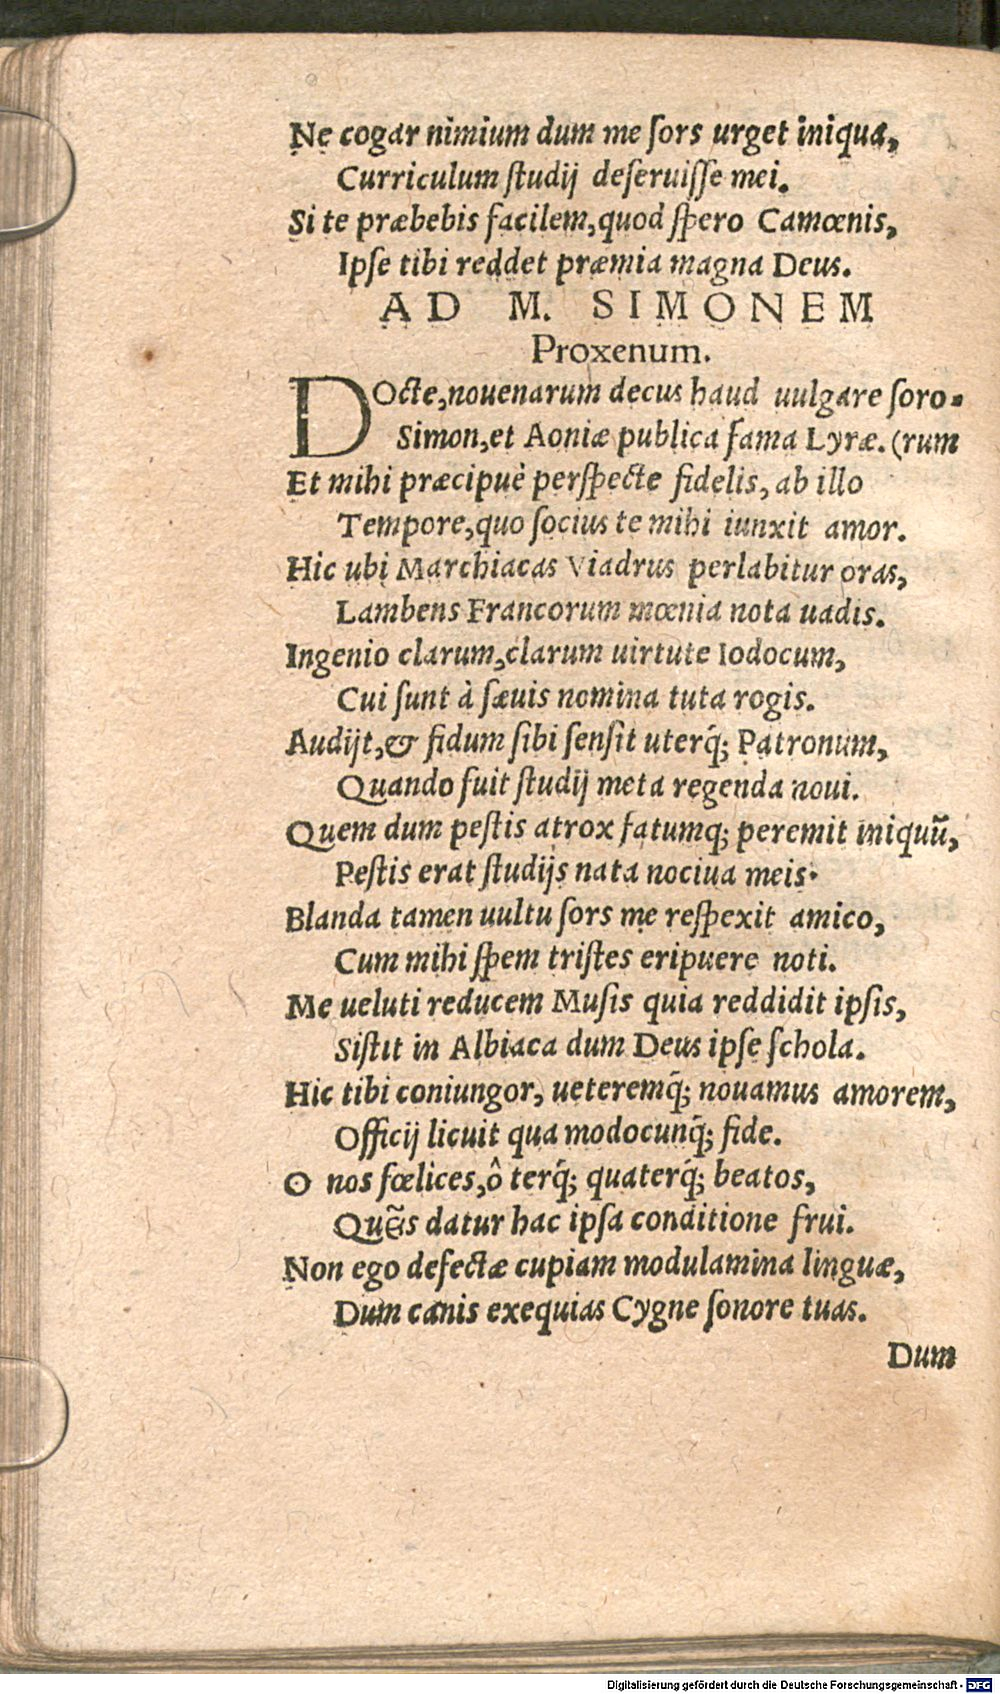 Ne cogar nimium dum me ſors urget iniqua,
Curriculum ſtudij deſeruiſſe mei.
Si te præbebis facilem,quod ſpero Camœnis,
Ipſe tibi reddet præmia magna Deus.
AD M. SIMONEM
Proxenum.
DOcte,nouenarum decus haud uulgare ſoro-
Simon,et Aoniæ publica fama Lyræ. (rum
Et mihi præcipuè perſpecte fidelis, ab illo
Tempore,quo ſocius te mihi iunxit amor.
Hic ubi Marchiacas Viadrus perlabitur oras,
Lambens Francorum mœnia nota uadis.
Ingenio clarum,clarum uirtute Iodocum,
Cui ſunt à ſæuis nomina tuta rogis.
Audijt,& fidum ſibi ſenſit uterq́; Patronum,
Quando fuit ſtudij meta regenda noui.
Quem dum peſtis atrox fatumq; peremit iniquũ,
Peſtis erat ſtudijs nata nociua meis.
Blanda tamen uultu ſors me reſpexit amico,
Cum mihi ſpem triſtes eripuere noti.
Me ueluti reducem Muſis quia reddidit ipſis,
Siſtit in Albiaca dum Deus ipſe ſchola.
Hic tibi coniungor, ueteremq́; nouamus amorem,
Officij licuit qua modocunq́; fide.
O nos fœlices,ô terq́; quaterq́; beatos,
Quẽis datur hac ipſa conditione frui.
Non ego defectæ cupiam modulamina linguæ,
Dum canis exequias Cygne ſonore tuas.
Dum
Digitalisierung gefördert durch die Deutsche Forschungsgemeinschaft - DFG